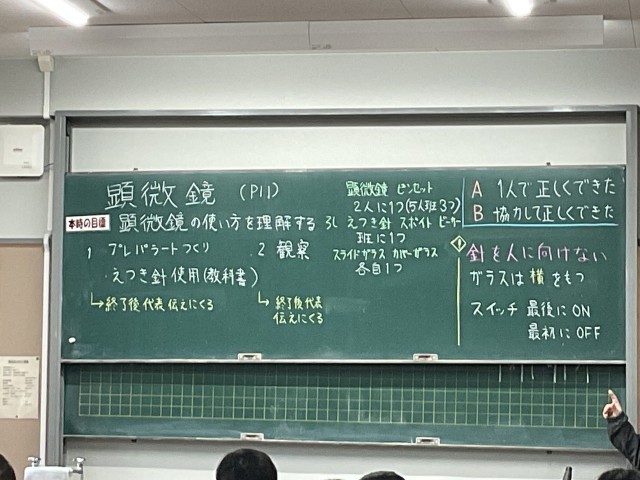 顕微鏡 (P11)
本時の目標 顕微鏡の使い方を理解する
1 プレパラートつくり
・えつき針使用(教科書)
↳終了後代表伝えにくる
2 観察
↳終了後代表
伝えにくる
顕微鏡 ピンセット
2人に1つ(5人班3つ)
えつき針 スポイト ビーカー
班に1つ
スライドガラス カバーガラス
各自1つ
A 1人で正しくできた
B 協力して正しくできた
針を人に向けない
ガラスは横をもつ
スイッチ 最後にON
最初にOFF